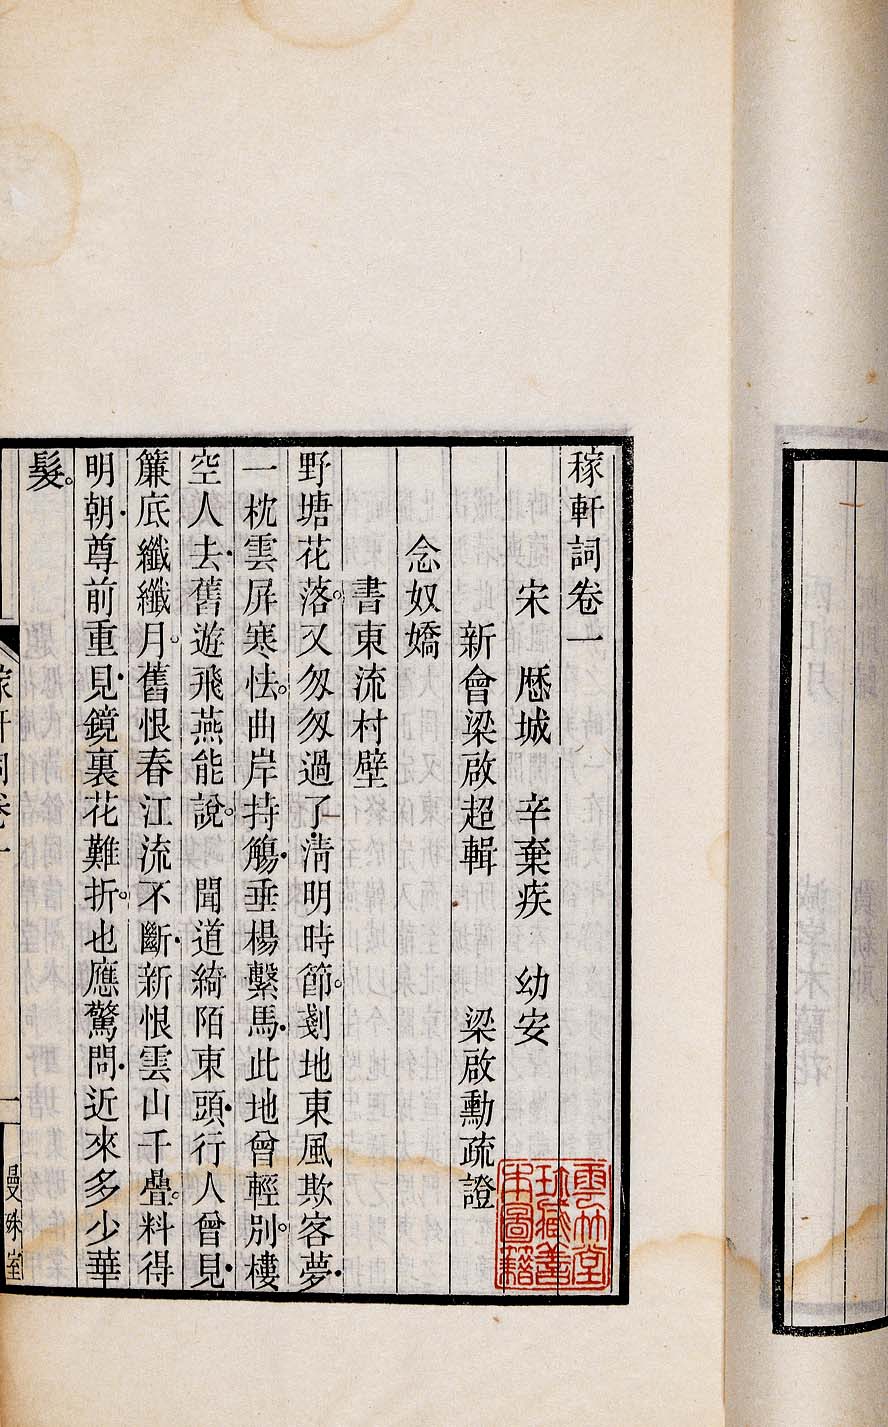 稼軒詞卷一
宋　歷城　辛棄疾　幼安
新會梁啟超輯　　　梁啟勳疏證
念奴嬌
書東流村壁
野塘花落。又匆匆過了清明時節。剗地東風欺客夢.
一枕雲屏寒怯。曲岸持觴.垂楊繫馬.此地曾輕別。樓
空人去.舊遊飛燕能說。　聞道綺陌東頭.行人曾見.
簾底纖纖月。舊恨春江流不斷.新恨雲山千疊。料得
明朝.尊前重見.鏡裏花難折。也應驚問.近來多少華
髮。
稼軒詞卷一
一
曼殊室
雲竹堂
珍藏善
本圖籍